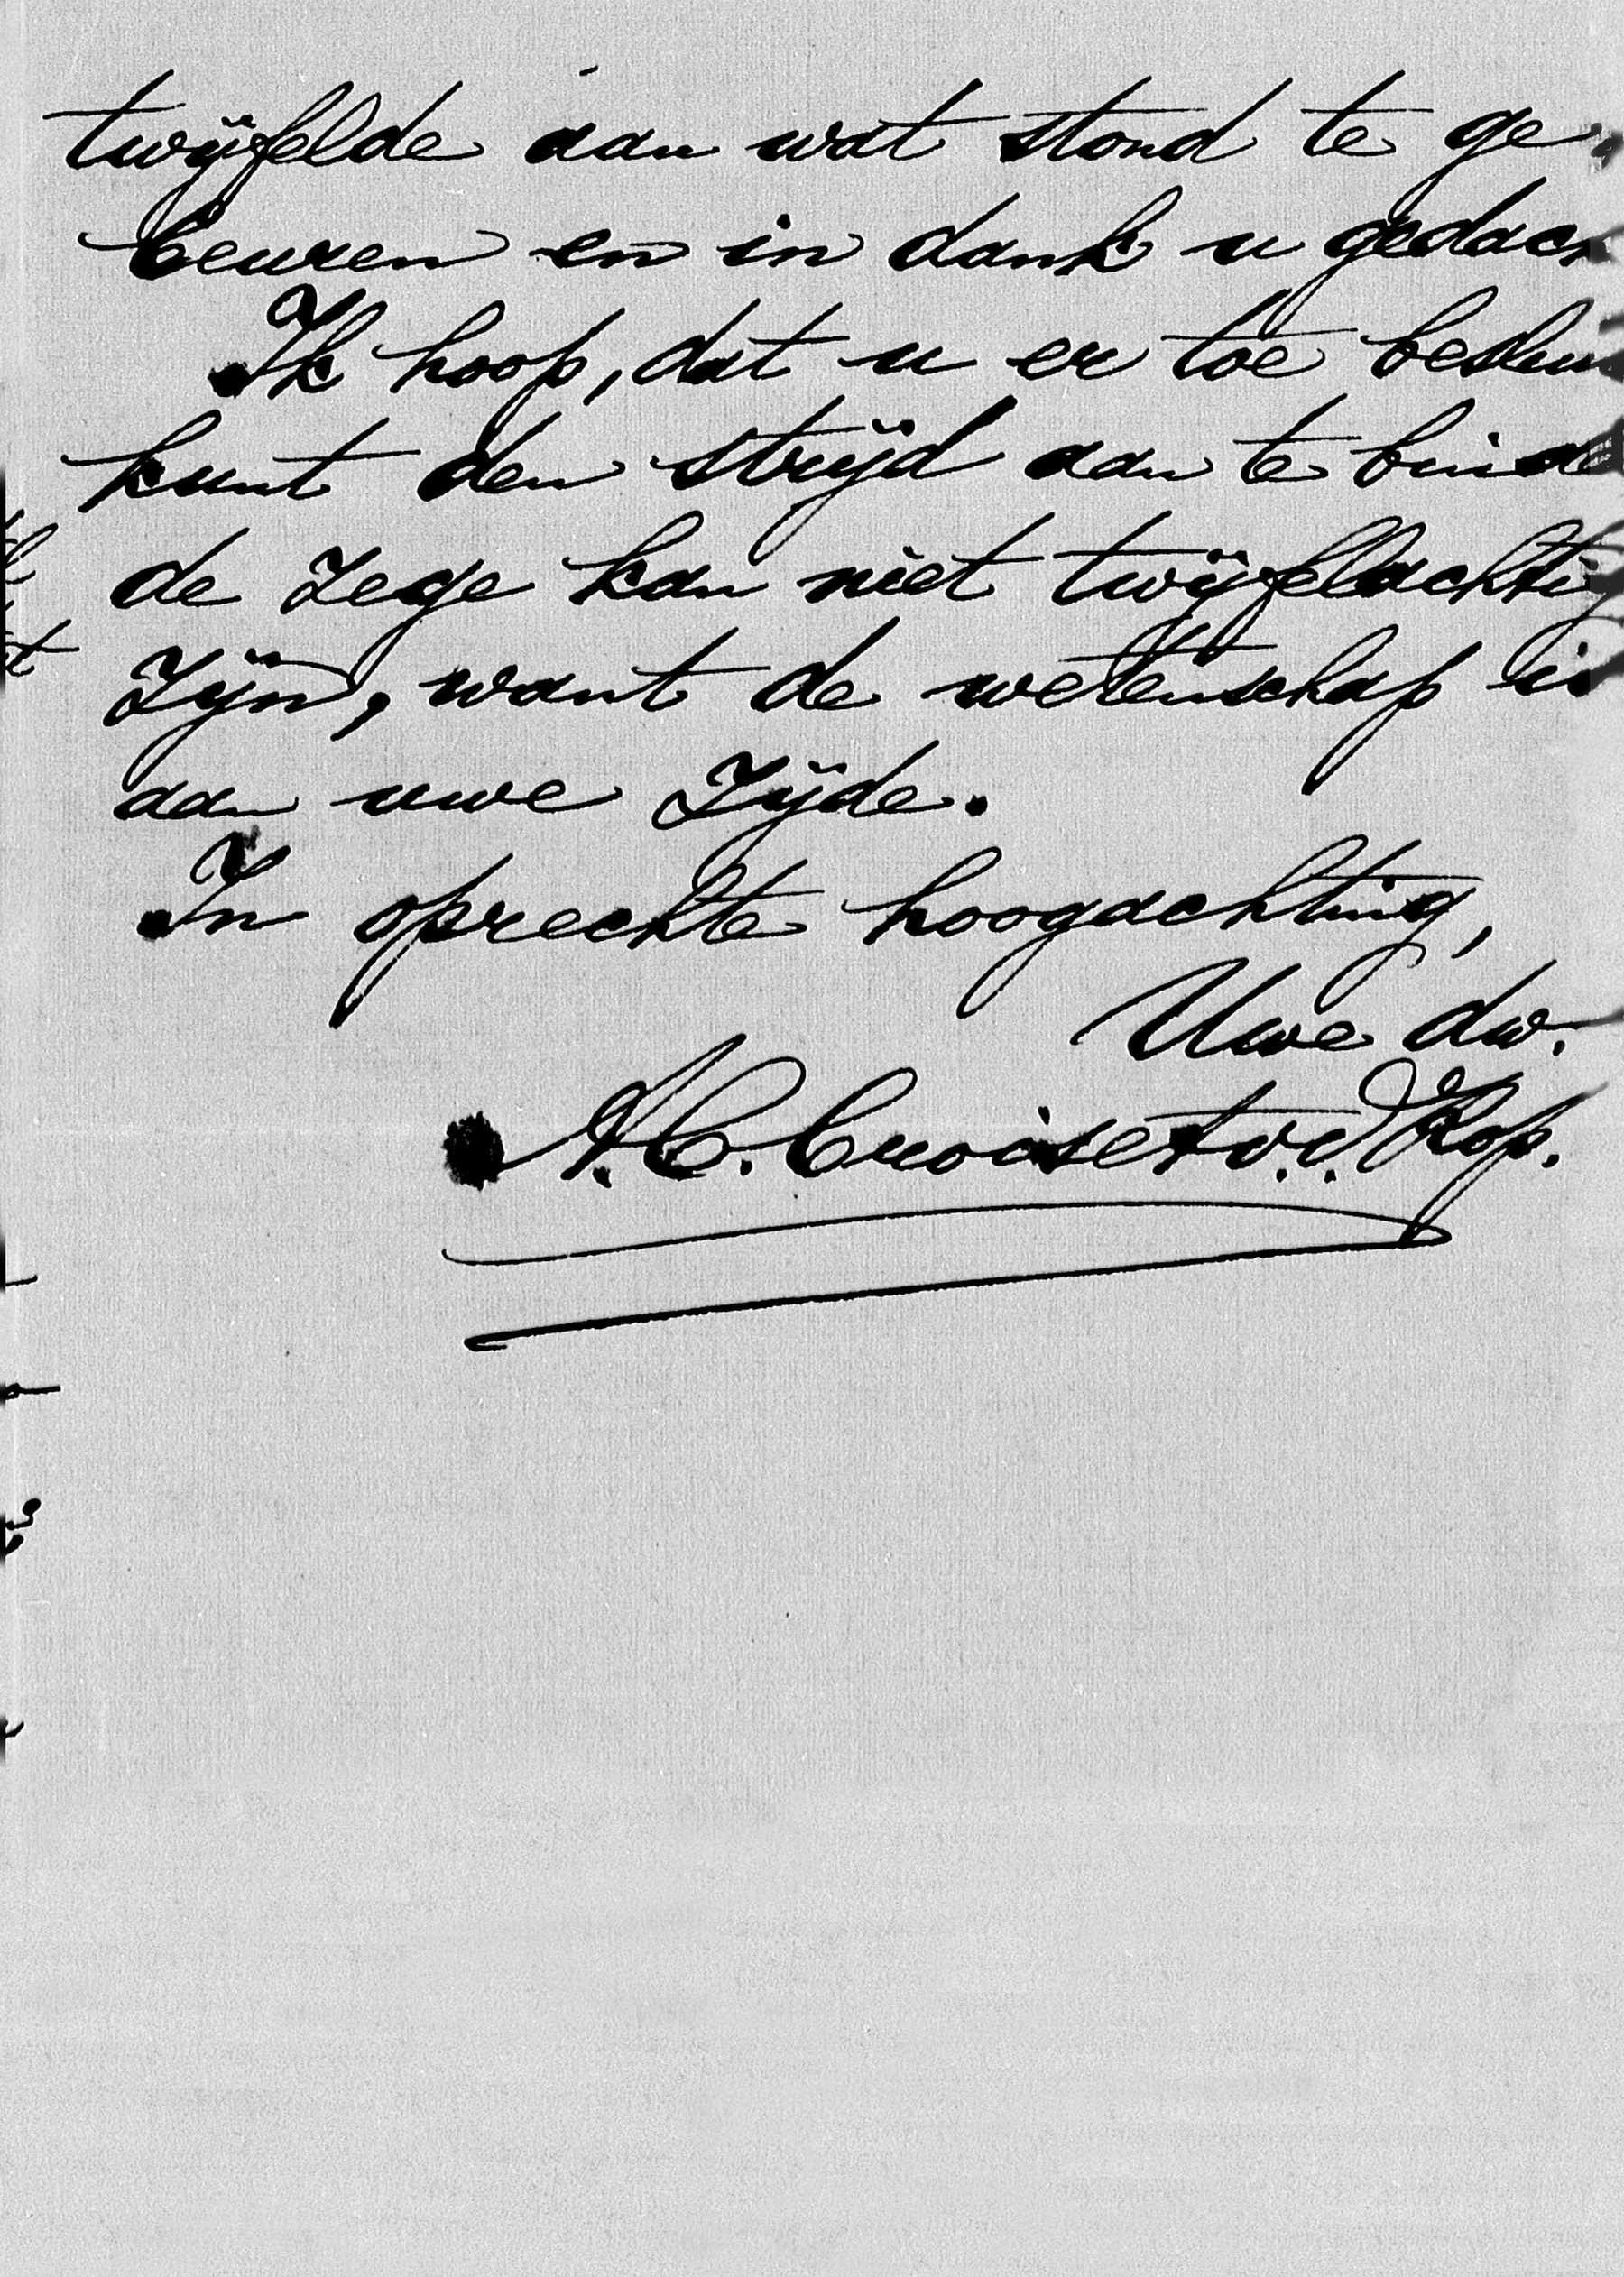 twijfelde aan wat stond te ge-
beuren en in dank u gedach
Ik hoop, dat u er toe beslui
kunt den strijd aan te binde
de zege kan niet twijfelachtig
zijn, want de wetenschap is
aan uwe zijde.
In oprechte hoogachting,
Uwe dw.
A.C. Croiset v.d. Kop.